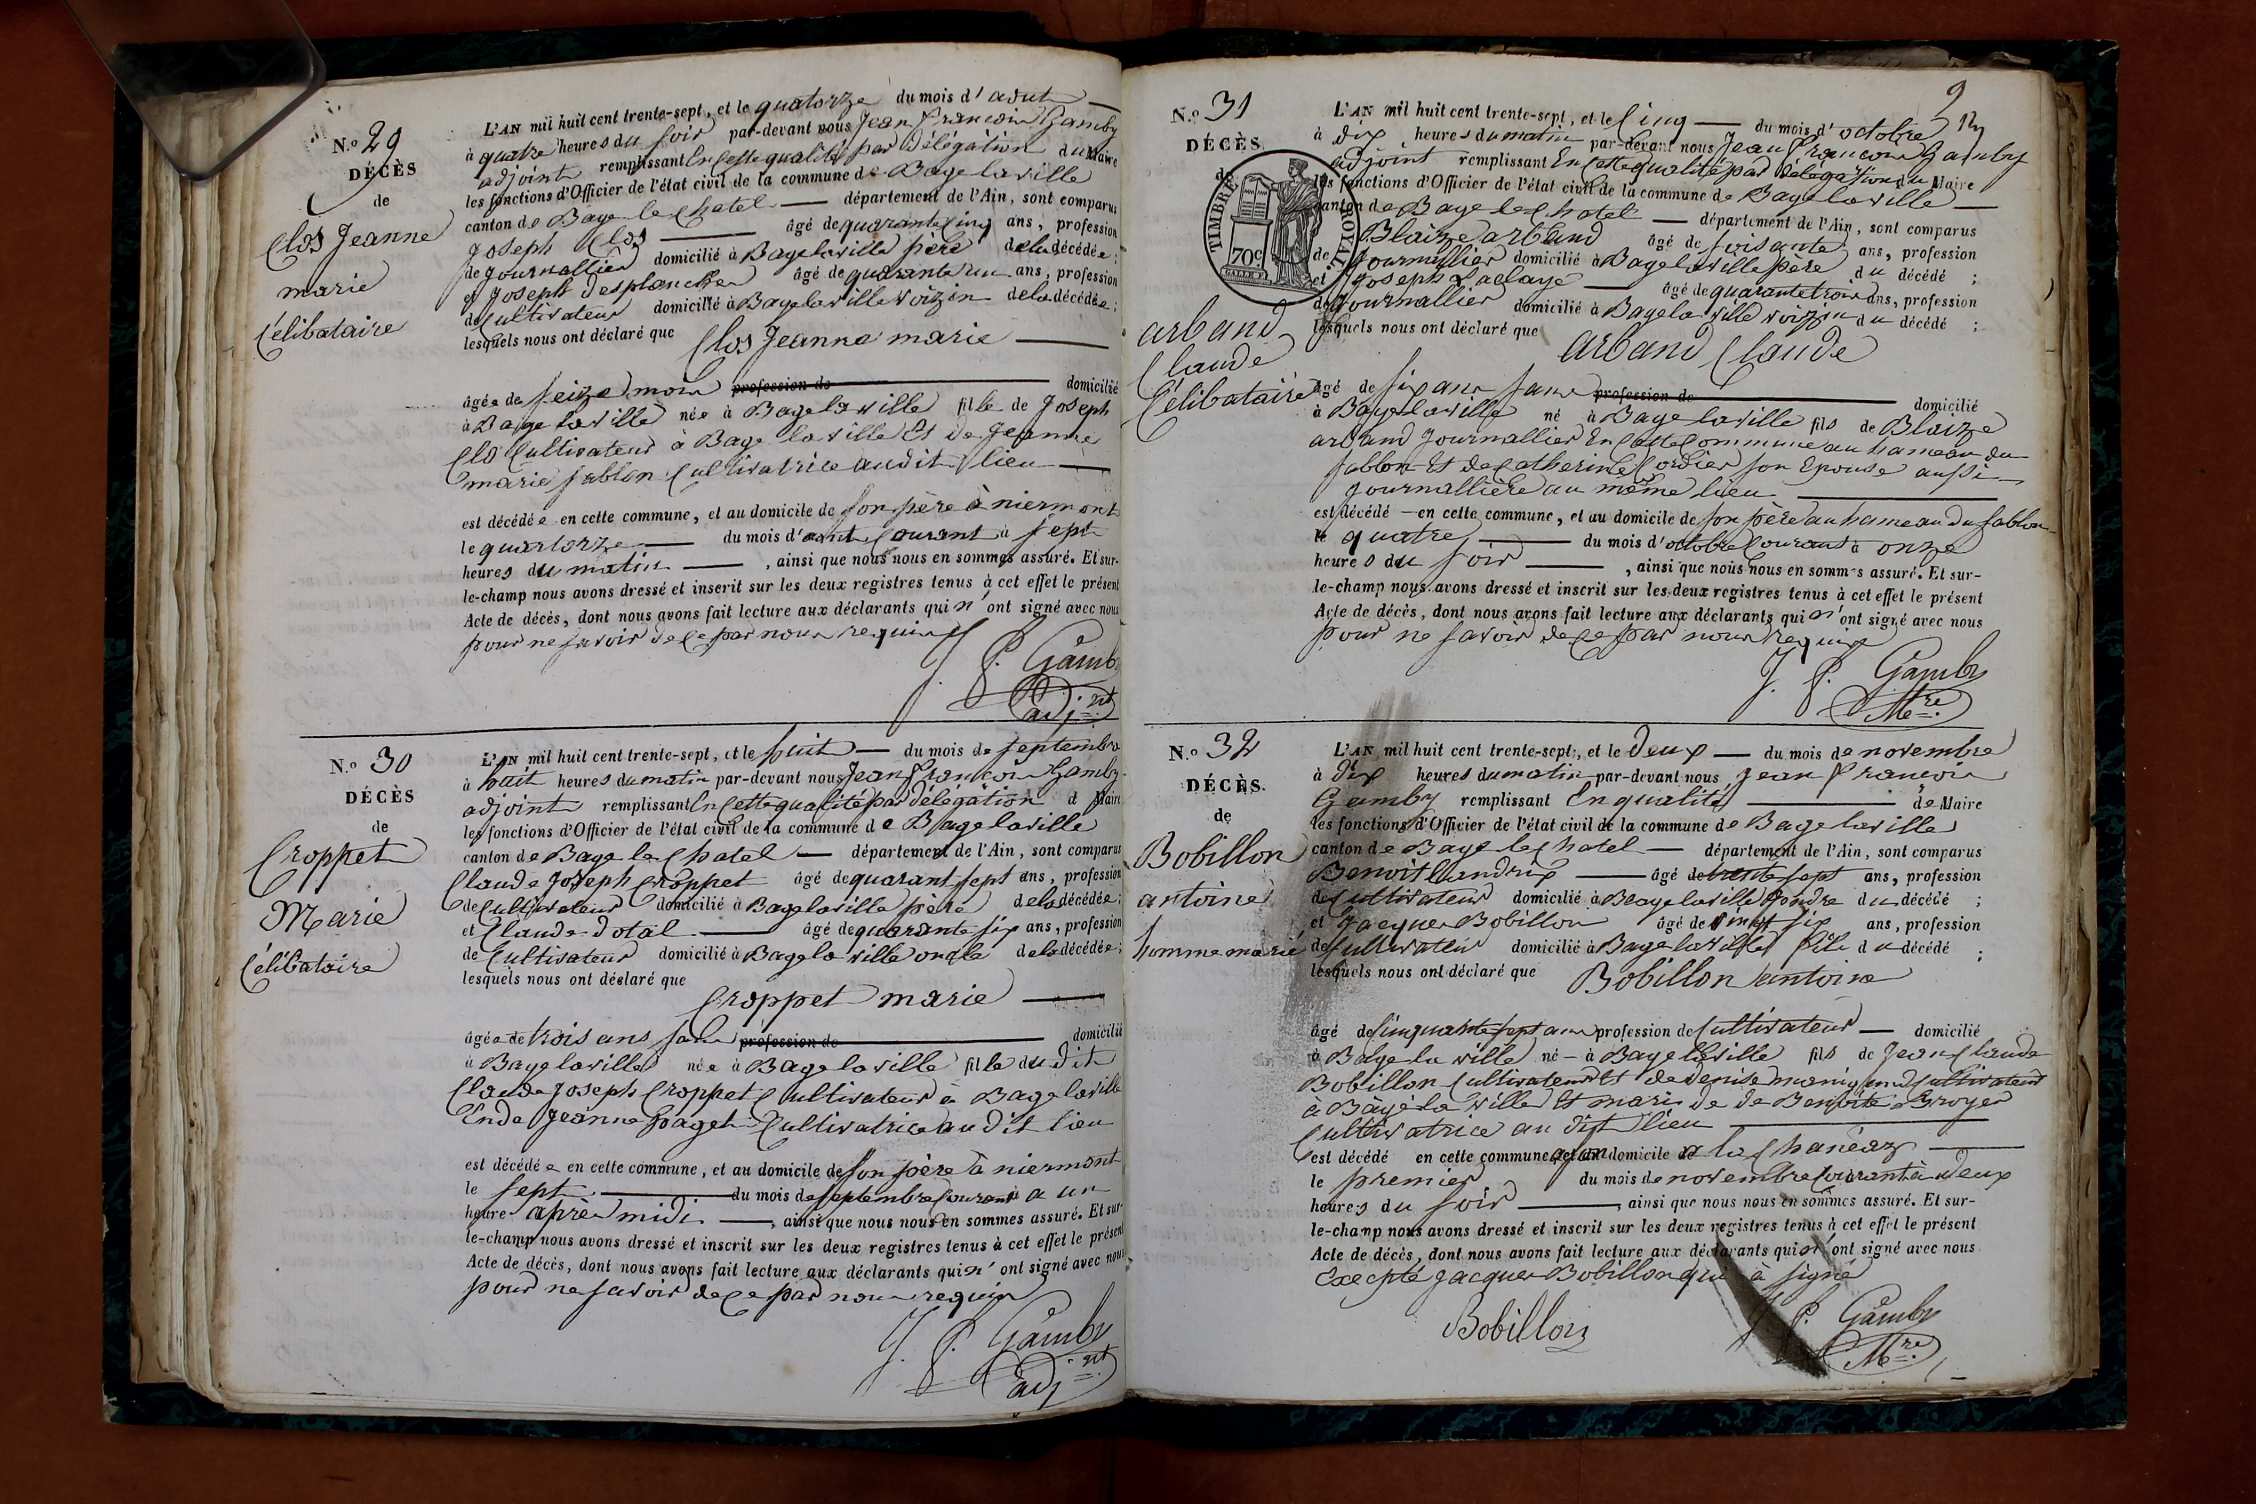 N.o 29
DÉCÈS
de
Clos Jeanne
marie
Célibataire
L'AN mil huit cent trente-sept, et le quatorze du mois d' aout
à quatre heures du soir par-devant nous Jean françois Gamby
adjoint remplissant En Cette qualité par délégation du Maire
les fonctions d'Officier de l'état civil de la commune de Bage la ville
canton de Bage le Chatel département de l'Ain, sont comparus
Joseph Clos âgé de quarante Cinq ans, profession
de Journallier domicilié à Bage la ville père de la décédée ;
et Joseph desplanches âgé de quarante un ans, profession
de Cultivateur domicilié à Bage la ville voizin de la décédée ;
lesquels nous ont déclaré que Clos Jeanne marie
âgée de seize mois profession de domicilié
à Bage la ville née à Bage la ville fille de Joseph
Clo Cultivateur à Bage la ville Et de Jeanne
marie sablon Cultivatrice audit lieu
est décédée en cette commune, et au domicile de son père à niermont
le quartorze du mois d'aout Courant à sept
heures du matin , ainsi que nous nous en sommes assuré. Et sur-
le-champ nous avons dressé et inscrit sur les deux registres tenus à cet effet le présent
Acte de décès, dont nous avons fait lecture aux déclarants qui n'ont signé avec nous
pour ne savoir de ce par nous requis
J. f. Gamby
adj.nt
N.o 30
DÉCÈS
de
Croppet
Marie
Célibataire
L'AN mil huit cent trente-sept, et le huit du mois de septembre
à huit heures du matin par-devant nous Jean françois Gamby
adjoint remplissant En Cette qualité par délégation d Maire
les fonctions d'Officier de l'état civil de la commune de Bage la ville
canton de Bage le Chatel département de l'Ain, sont comparus
Claude Joseph Croppet âgé de quarant sept ans, profession
de Cultivateur domicilié à Bage la ville père de la décédée ;
et Claude dotal âgé de quarante six ans, profession
de Cultivateur domicilié à Bage la ville oncle de la décédée ;
lesquels nous ont déclaré que
Croppet marie
âgée de trois ans sans profession de domicilié
à Bage la ville née à Bage la ville fille du dit
Claude Joseph Croppet Cultivateur à Bage la ville
En de Jeanne paget Cultivatrice au dit lieu
est décédée en cette commune, et au domicile de son père à niermont
le sept du mois de septembre Courant à un
heure après midi , ainsi que nous nous en sommes assuré. Et sur-
le-champ nous avons dressé et inscrit sur les deux registres tenus à cet effet le présent
Acte de décès, dont nous avons fait lecture aux déclarants qui n'ont signé avec nous
pour ne savoir de ce par nous requis
J. f. Gamby
adj.nt
9
N.o 31
DÉCÈS
de
TIMBRE ROYAL
70c
arband
Claude
Célibataire
L'AN mil huit cent trente-sept, et le Cinq du mois d' octobre
à dix heures du matin par-devant nous Jean françois Gamby
adjoint remplissant En Cette qualité par délégation du Maire
les fonctions d'Officier de l'état civil de la commune de Bage la ville
canton de Bage le Chatel département de l'Ain, sont comparus
Blaize arband âgé de soisante ans, profession
de Journallier domicilié à Bage la ville père du décédé ;
et Joseph Laclaye âgé de quarante trois ans, profession
de Journallier domicilié à Bage la ville voizin du décédé ;
lesquels nous ont déclaré que
arband Claude
âgé de six ans sans profession de domicilié
à Bage la ville né à Bage la ville fils de Blaize
arband Journallier En Cette Commune au hameau du
sablon Et de Catherine Cordier son Epouse aussi
Journallière au même lieu
est décédé en cette commune, et au domicile de son père au hameau du sablon
le quatre du mois d'octobre Courant à onze
heures du soir , ainsi que nous nous en sommes assuré. Et sur-
le-champ nous avons dressé et inscrit sur les deux registres tenus à cet effet le présent
Acte de décès, dont nous avons fait lecture aux déclarants qui n'ont signé avec nous
pour ne savoir de ce par nous requis
J. f. Gamby
M.re
N.o 32
DÉCÈS.
de
Bobillon
antoine
homme marié
L'AN mil huit cent trente-sept, et le deux du mois de novembre
à dix heures du matin par-devant nous Jean françois
Gamby remplissant En qualité de Maire
les fonctions d'Officier de l'état civil de la commune de Bage la ville
canton de Bage le Chatel département de l'Ain, sont comparus
Benoit Landrix âgé de trente sept ans, profession
de Cultivateur domicilié à Bage la ville Gendre du décédé ;
et Jacques Bobillon âgé de vingt six ans, profession
de Cultivateur domicilié à Bage la ville fils du décédé ;
lesquels nous ont déclaré que Bobillon antoine
âgé de Cinquante sept ans profession de Cultivateur domicilié
à Bage la ville né à Bage la ville fils de Jean Claude
Bobillon Cultivateur Et de denise manigand Cultivateur
à Bagé la ville Et mari de de Benoite Broyer
Cultivatrice au dit lieu
est décédé en cette commune et au domicile a la Chanéaz
le premier du mois de novembre Courant à deux
heures du soir , ainsi que nous nous en sommes assuré. Et sur-
le-champ nous avons dressé et inscrit sur les deux registres tenus à cet effet le présent
Acte de décès, dont nous avons fait lecture aux déclarants qui n'ont signé avec nous
Excepté Jacques Bobillon qui à signé
Bobillon J. f. Gamby
M.re